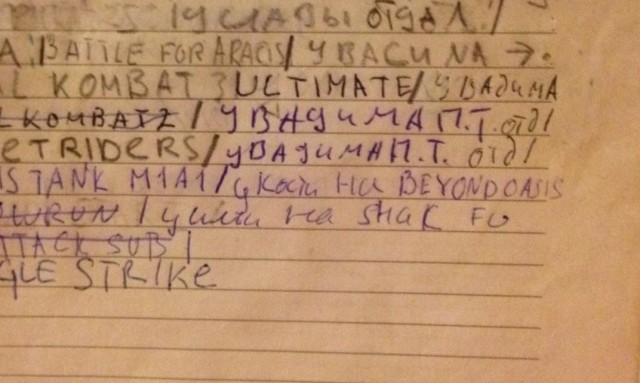 1 У СЛАВЫ ОТДАЛ/
A:/BATTLE FOR ARACIS/ У ВАСИ NA →.
L KOMBAT 3 ULTIMATE/ У ВАДИМА
L KOMBAT 2 / У ВАДИМА П.Т. отд/
ETRIDERS/ У ВАДИМА П.Т. отд/
IS TANK M1A1/ у Кости на BEYOND OASIS
/ у на SHAK FU
TTACK SUB /
GLE STRIKE